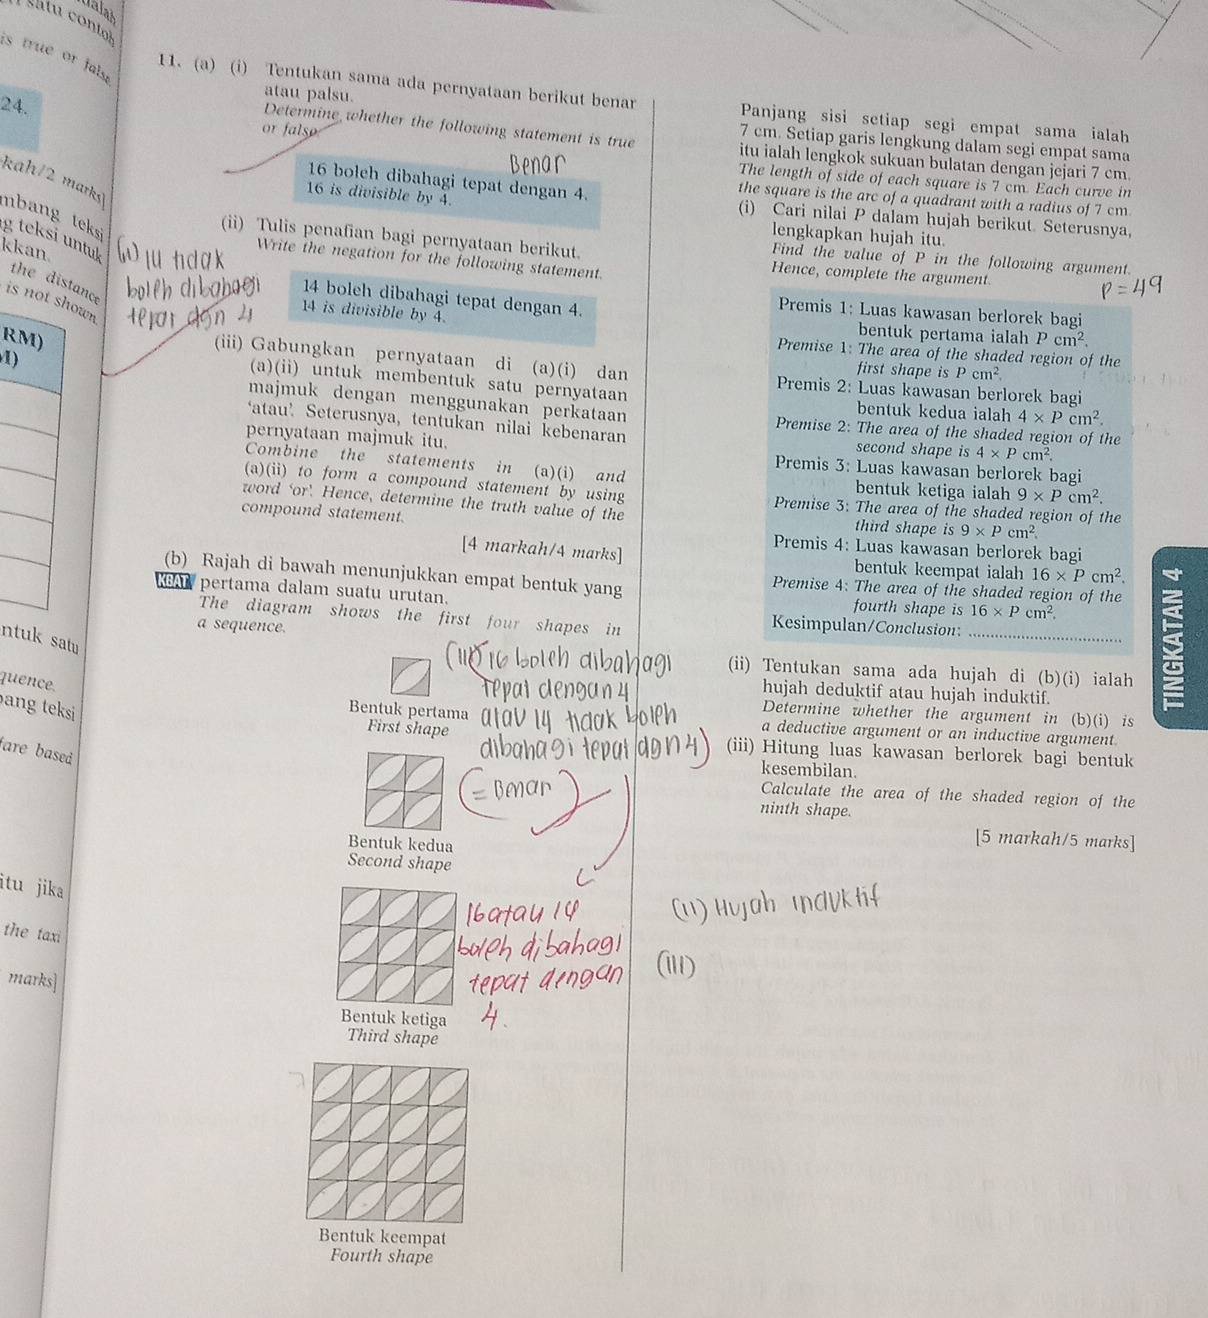 satu contoh
is true or false
24.
kah/2 marks]
mbang teksi
g teksi untuk
kkan.
the distance
is not shown.
RM)
M)
ntuk satu
quence.
ang teksi
fare based
itu jika
the taxi
marks]
11. (a) (i) Tentukan sama ada pernyataan berikut benar
atau palsu.
Determine whether the following statement is true
or false.
Benar
16 boleh dibahagi tepat dengan 4.
16 is divisible by 4.
(ii) Tulis penafian bagi pernyataan berikut.
Write the negation for the following statement.
(ii) 14 tidak
boleh dibahagi
tepat dgn 4
14 boleh dibahagi tepat dengan 4.
14 is divisible by 4.
(iii) Gabungkan pernyataan di (a)(i) dan
(a)(ii) untuk membentuk satu pernyataan
majmuk dengan menggunakan perkataan
‘atau’. Seterusnya, tentukan nilai kebenaran
pernyataan majmuk itu.
Combine the statements in (a)(i) and
(a)(ii) to form a compound statement by using
word ‘or’. Hence, determine the truth value of the
compound statement.
[4 markah/4 marks]
(b) Rajah di bawah menunjukkan empat bentuk yang
KBAT pertama dalam suatu urutan.
The diagram shows the first four shapes in
a sequence.
(iii) 16 boleh dibahagi
tepat dengan 4
atau 14 tidak boleh
dibahagi tepat dgn 4)
(= Benar)
Bentuk pertama
First shape
Bentuk kedua
Second shape
16 atau 14
boleh dibahagi
tepat dengan
4.
Bentuk ketiga
Third shape
Bentuk keempat
Fourth shape
Panjang sisi setiap segi empat sama ialah
7 cm. Setiap garis lengkung dalam segi empat sama
itu ialah lengkok sukuan bulatan dengan jejari 7 cm.
The length of side of each square is 7 cm. Each curve in
the square is the arc of a quadrant with a radius of 7 cm.
(i) Cari nilai P dalam hujah berikut. Seterusnya,
lengkapkan hujah itu.
Find the value of P in the following argument.
Hence, complete the argument.
P = 49
Premis 1: Luas kawasan berlorek bagi
bentuk pertama ialah P cm².
Premise 1: The area of the shaded region of the
first shape is P cm².
Premis 2: Luas kawasan berlorek bagi
bentuk kedua ialah 4 × P cm².
Premise 2: The area of the shaded region of the
second shape is 4 × P cm².
Premis 3: Luas kawasan berlorek bagi
bentuk ketiga ialah 9 × P cm².
Premise 3: The area of the shaded region of the
third shape is 9 × P cm².
Premis 4: Luas kawasan berlorek bagi
bentuk keempat ialah 16 × P cm².
Premise 4: The area of the shaded region of the
fourth shape is 16 × P cm².
Kesimpulan/Conclusion:
(ii) Tentukan sama ada hujah di (b)(i) ialah
hujah deduktif atau hujah induktif.
Determine whether the argument in (b)(i) is
a deductive argument or an inductive argument.
(iii) Hitung luas kawasan berlorek bagi bentuk
kesembilan.
Calculate the area of the shaded region of the
ninth shape.
[5 markah/5 marks]
(ii) Hujah induktif
(iii)
TINGKATAN 4